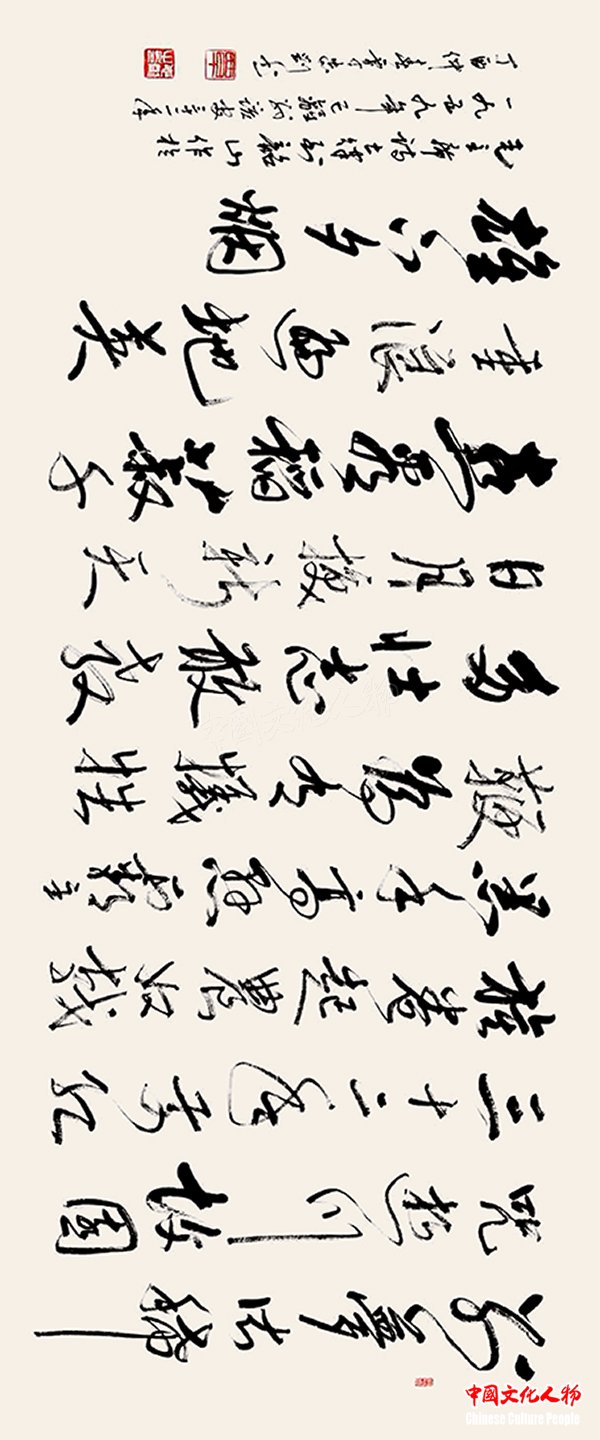 别夢依稀
咒逝川故園
三十二年前红
旗卷起農奴戟
黑手高悬霸主
鞭為有犠牲
多壮志敢教
日月换新天
喜看稻菽千
重浪遍地英
雄下夕烟
毛主席诗七律到韶山作於
一九五九年
丁酉仲夏
中國文化人物
中國文化人物
Chinese Culture People